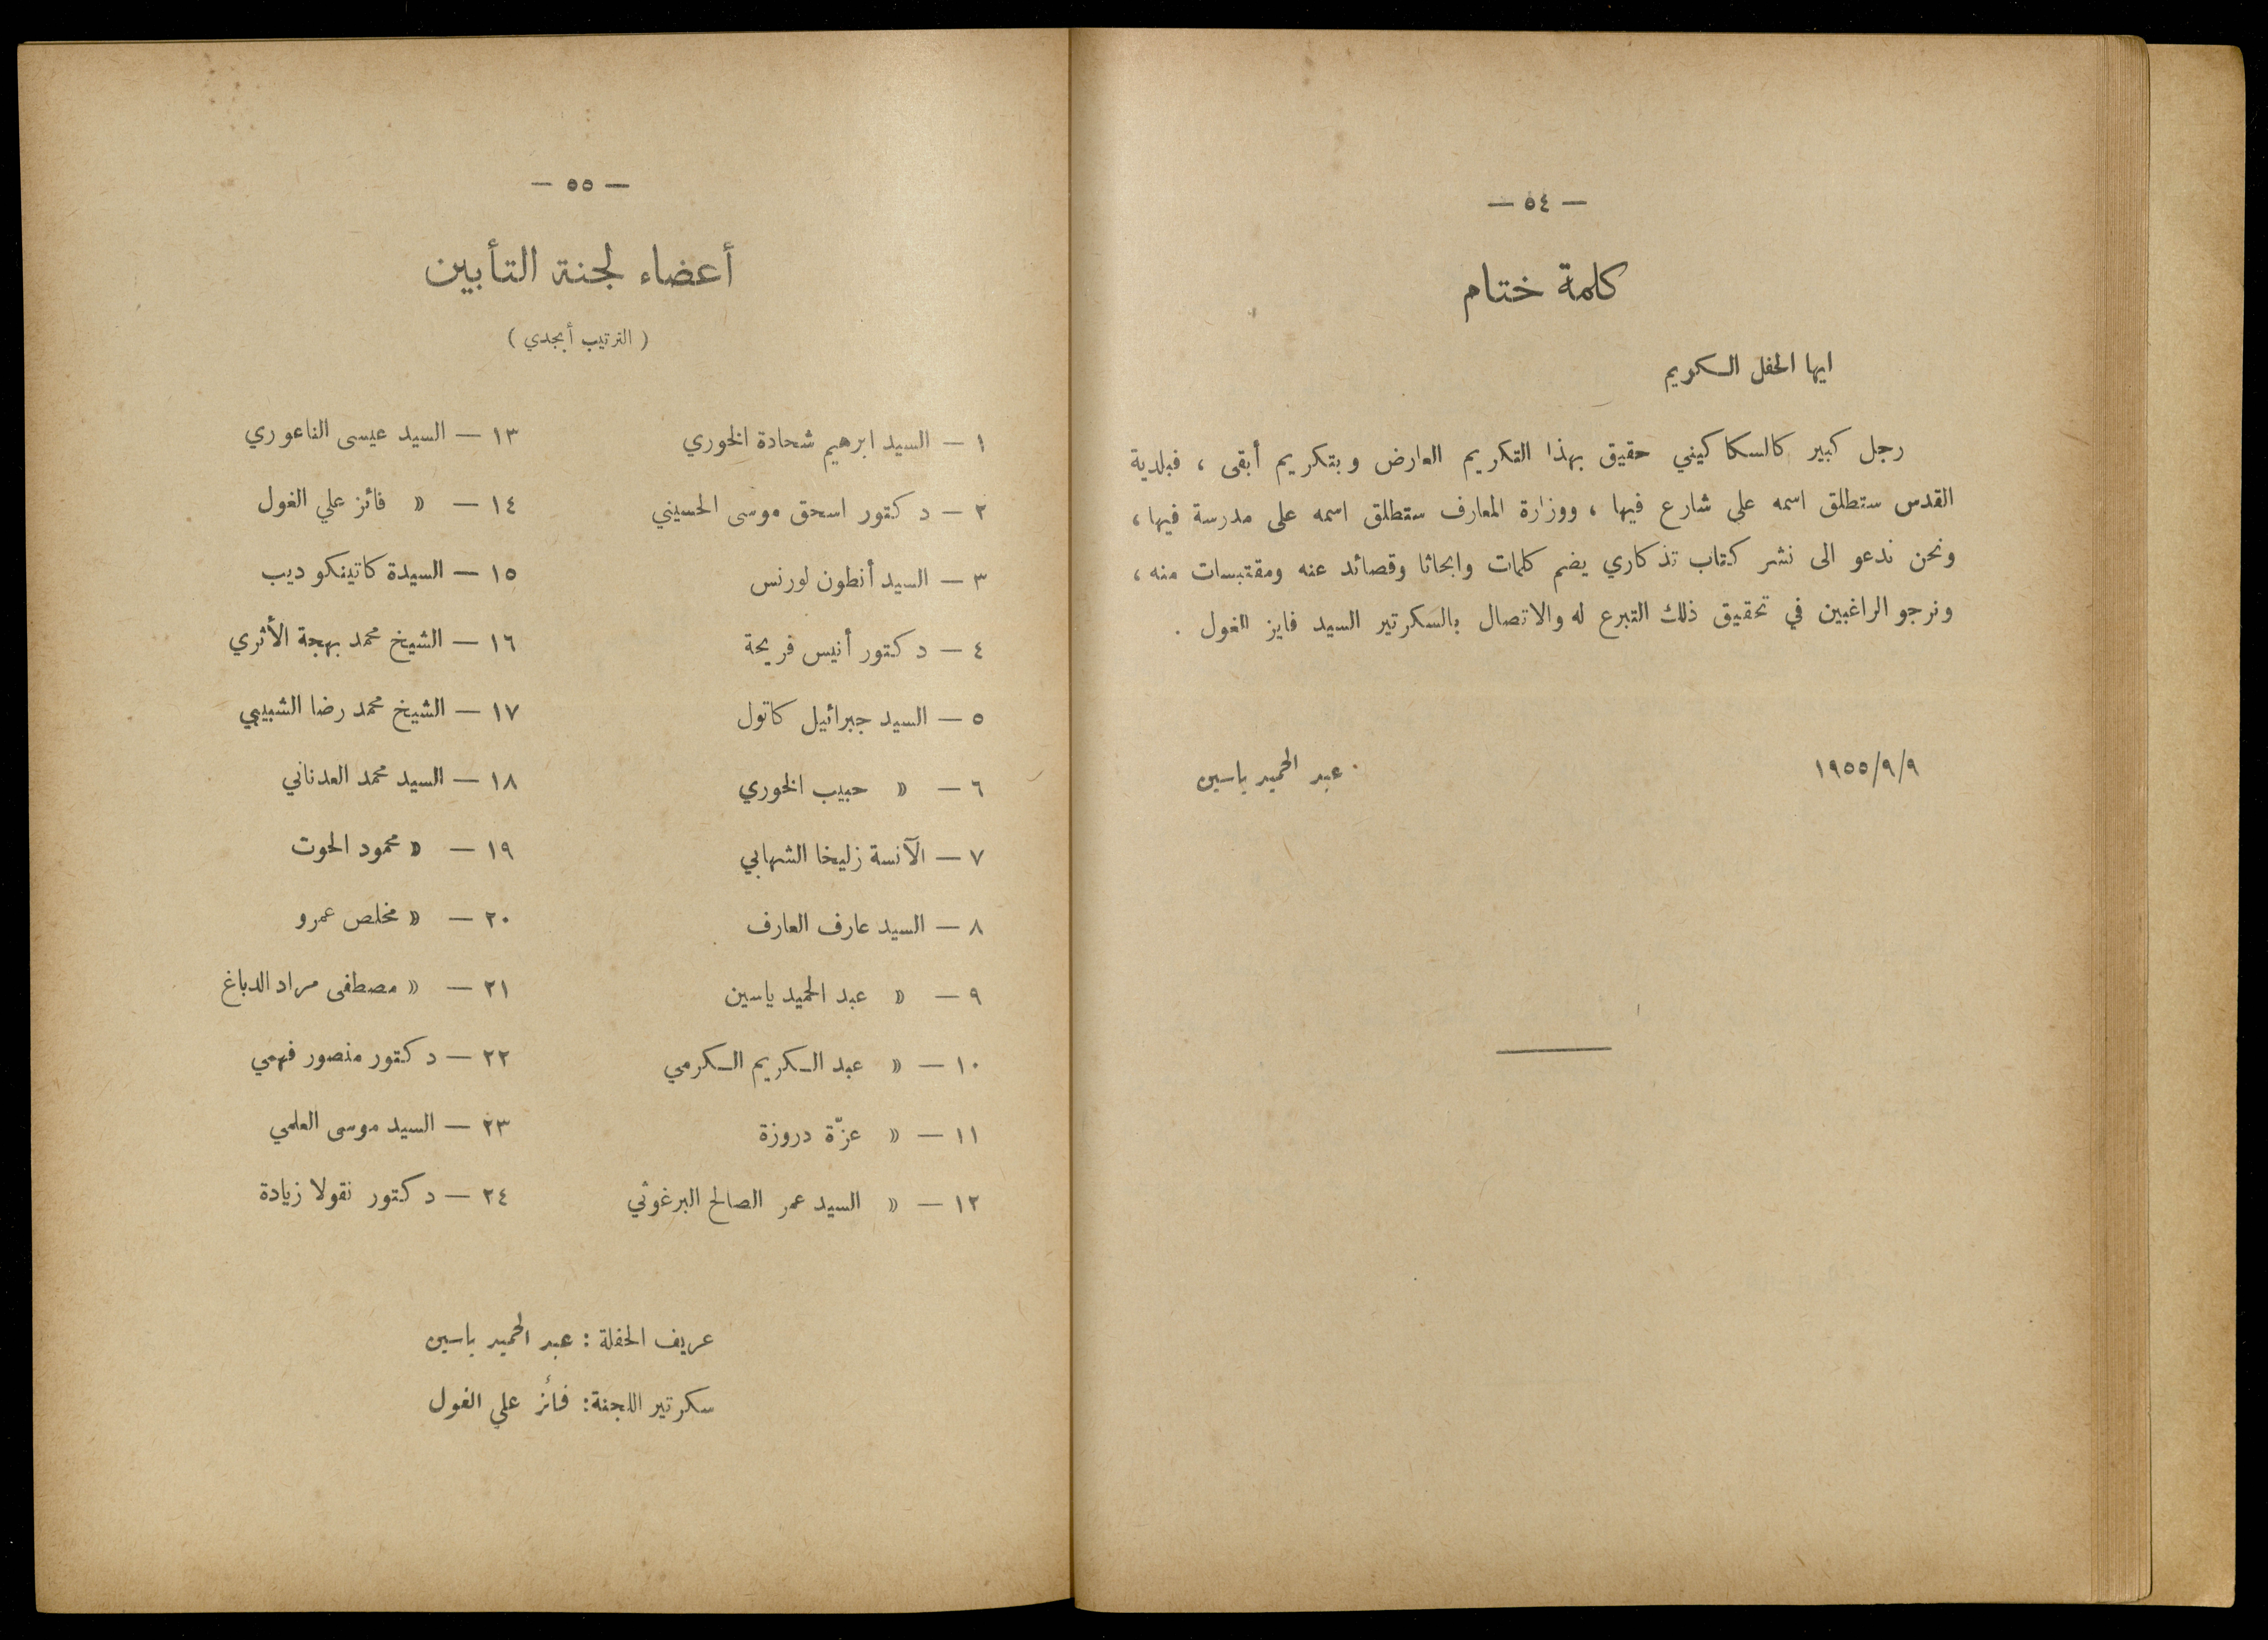 — ٥٤ —
كلمة ختام
ايها الحفل الكريم
رجل كبير كالسكاكيني حقيق بهذا التكريم العارض وبتكريم أبقى ، فبلدية
القدس ستطلق اسمه على شارع فيها ، ووزارة المعارف ستطلق اسمه على مدرسة فيها ،
ونحن ندعو الى نشر كتاب تذكاري يضم كلمات وابحاثا وقصائد عنه ومقتبسات منه ،
ونرجو الراغبين في تحقيق ذلك التبرع له والاتصال بالسكرتير السيد فايز الغول .
١٩٥٥/٩/٩
عبد الحميد ياسين
— ٥٥ —
أعضاء لجنة التأبين
( الترتيب أبجدي )
١ — السيد ابرهيم شحادة الخوري
٢ — دكتور اسحق موسى الحسيني
٣ — السيد أنطون لورنس
٤ — دكتور أنيس فريحة
٥ — السيد جبرائيل كاتول
٦ — » حبيب الخوري
٧ — الآنسة زليخا الشهابي
٨ — السيد عارف العارف
٩ — » عبد الحميد ياسين
١٠ — » عبد الكريم الكرمي
١١ — » عزّة دروزة
١٢ — » السيد عمر الصالح البرغوثي
١٣ — السيد عيسى الناعوري
١٤ — » فائز علي الغول
١٥ — السيدة كاتينكو ديب
١٦ — الشيخ محمد بهجة الأثري
١٧ — الشيخ محمد رضا الشبيبي
١٨ — السيد محمد العدناني
١٩ — » محمود الحوت
٢٠ — » مخلص عمرو
٢١ — » مصطفى مراد الدباغ
٢٢ — دكتور منصور فهمي
٢٣ — السيد موسى العلمي
٢٤ — دكتور نقولا زيادة
عريف الحفلة : عبد الحميد ياسين
سكرتير اللجنة : فائز علي الغول